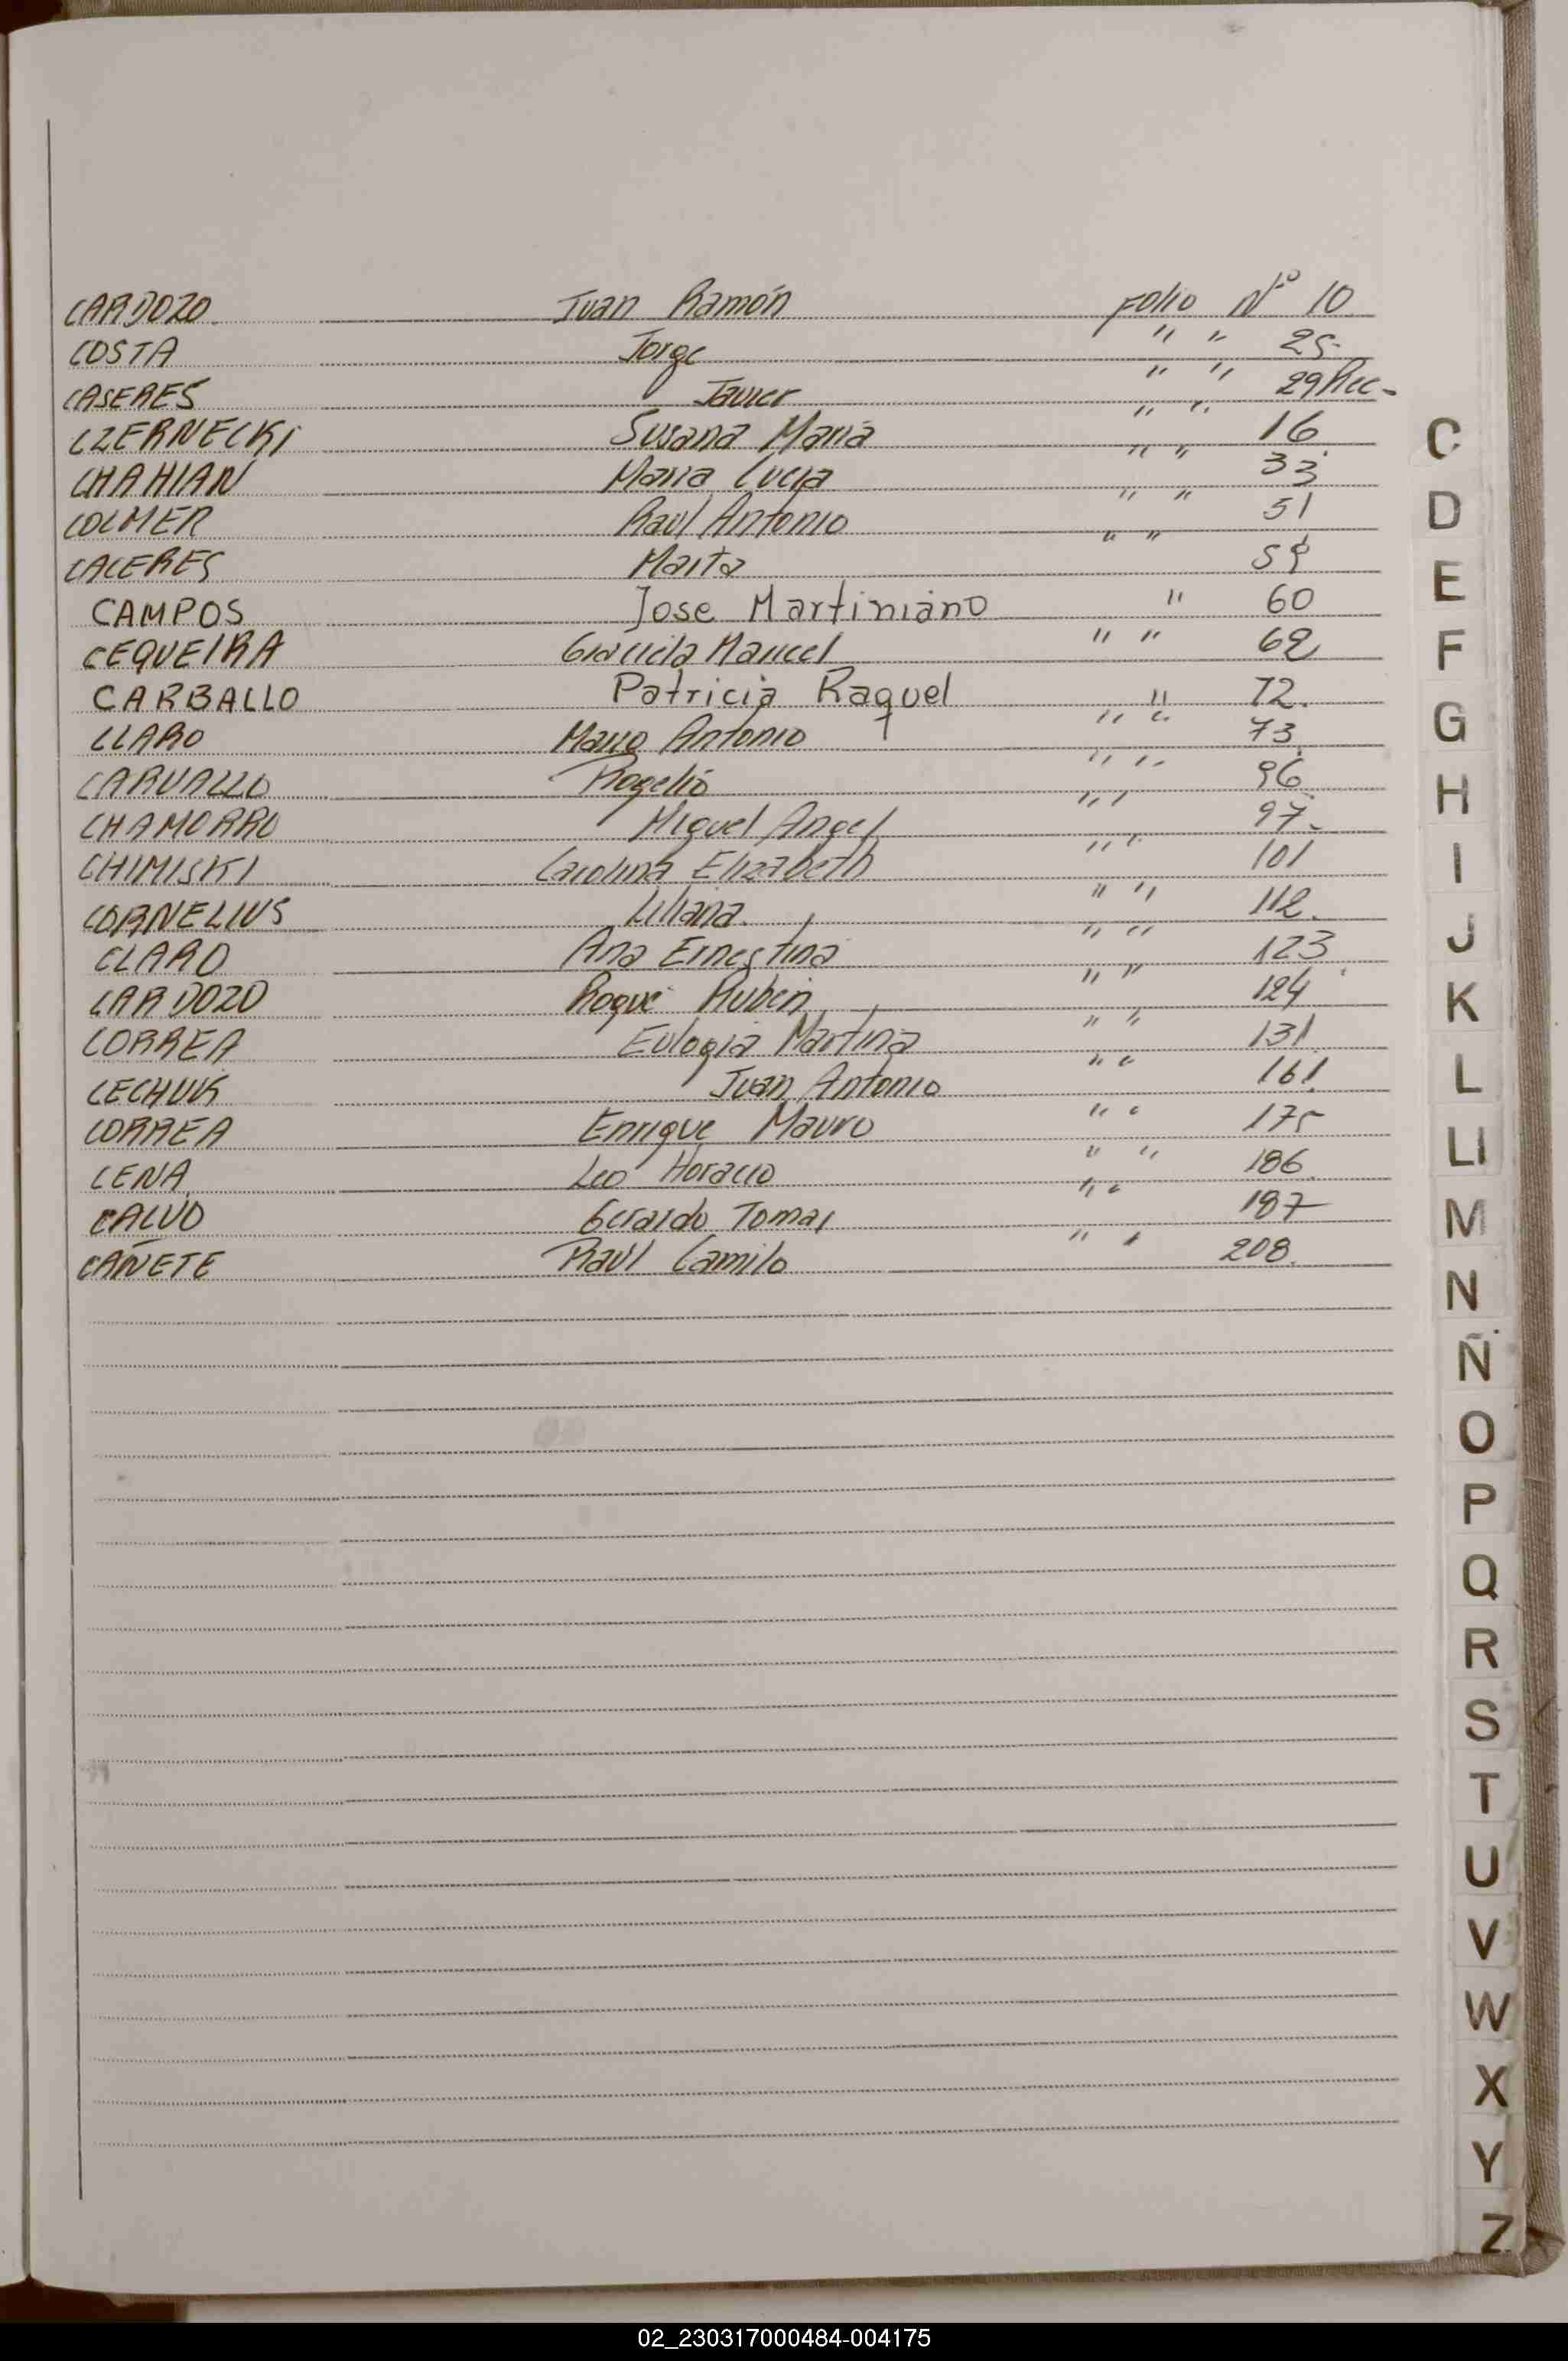 CARDOZO Juan Ramón Folio Nº 10
COSTA Jorge " " 25.
CASERES Javier " " 29 Rec-
CZERNECKI Susana Maria " " 16
CHAHIAN Maria Lucia " " 33
COLMER Raul Antonio " " 51
CACERES Marta " "
CAMPOS Jose Martiniano " 60
CEQUEIRA Graciela Maricel " " 62
CARBALLO Patricia Raquel " 72.
CLARO Mario Antonio " " 73
CARVALLO Rogelio " " 96
CHAMORRO Miguel Angel " " 97.
CHIMISKI Carolina Elizabeth " " 101
CORNELIUS Liliana. " " 112.
CLARO Ana Ernestina " " 123
CARDOZO Roque Ruben " " 124
CORREA Eulogia Martina " " 131
CECHUK Juan Antonio " " 161.
CORREA Enrique Mauro " " 175
CENA Leo Horacio " " 186
CALVO Gerardo Tomas " " 187
CAÑETE Raúl Camilo " " 208.
C
D
E
F
G
H
I
J
K
L
Ll
M
N
Ñ
O
P
Q
R
S
T
U
V
W
X
Y
Z
02_230317000484-004175